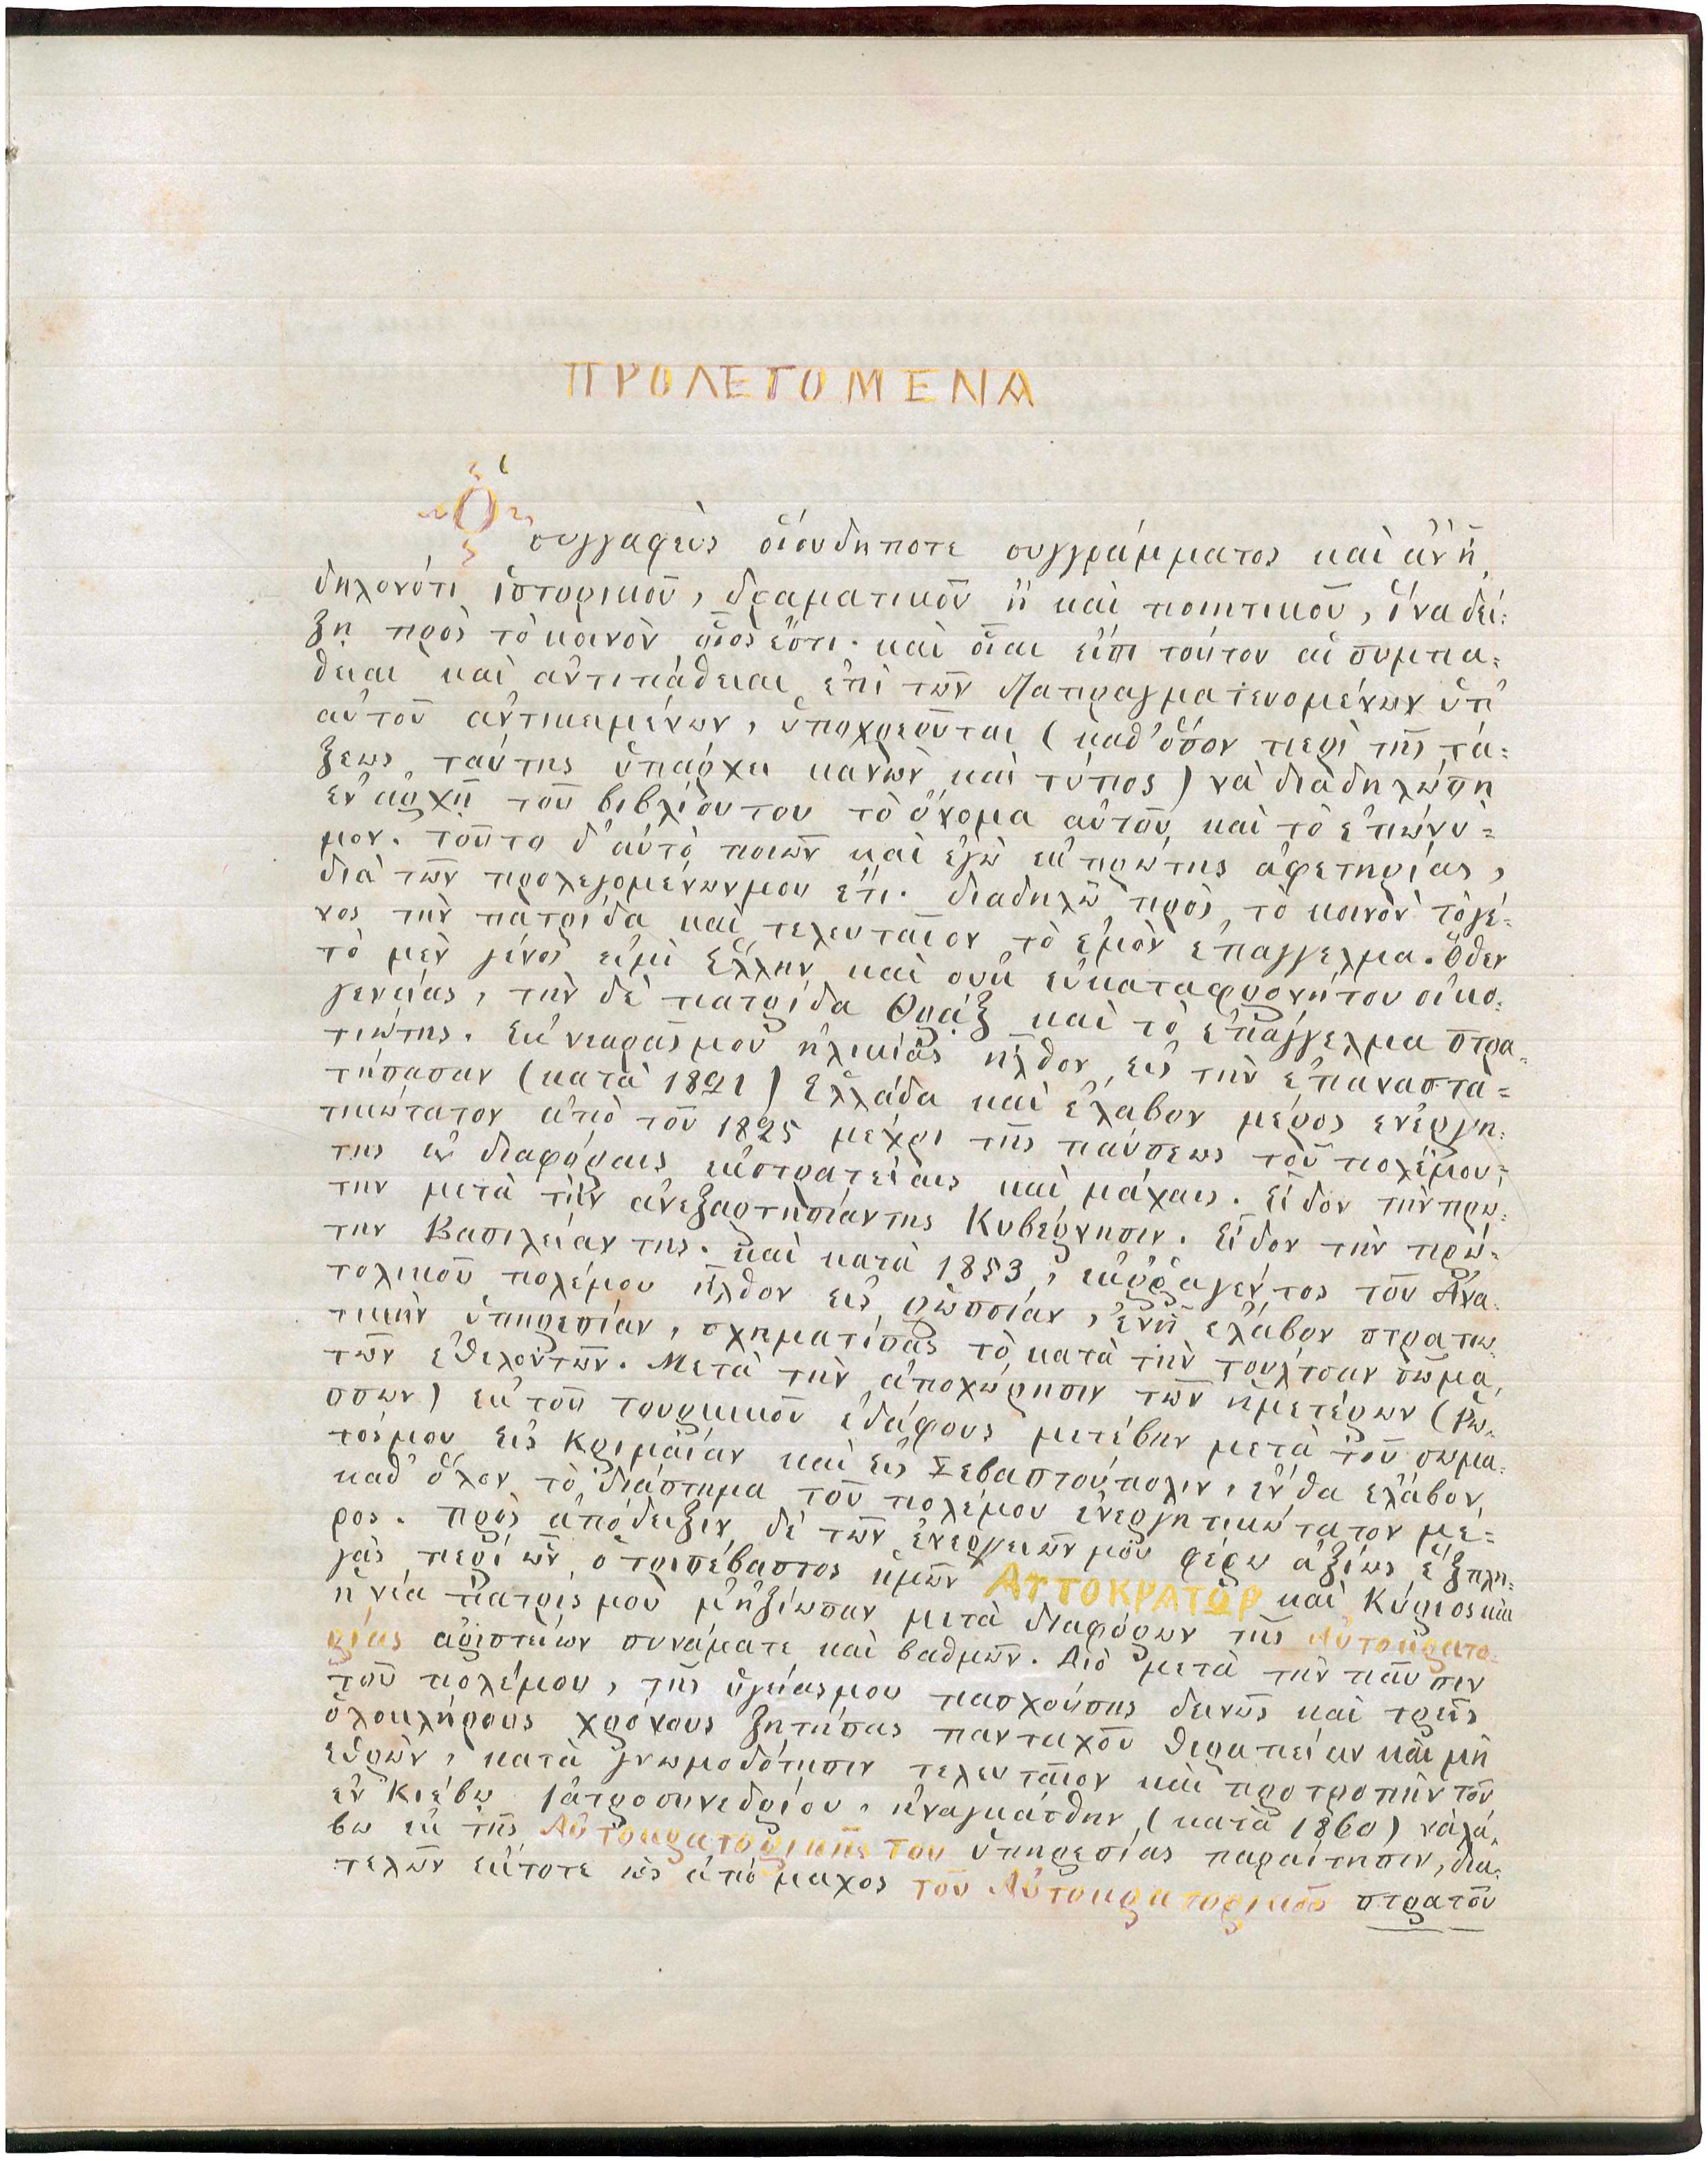 ΠΡΟΛΕΓΟΜΕΝΑ
Ὁ συγγαφεὺς οἱουδηποτε συγγράμματος καὶ ἂν ᾖ,
δηλονότι ἱστορικοῦ, δραματικοῦ ἢ καὶ ποιητικοῦ, ἵνα δεί=
ξῃ πρὸς τὸ κοινὸν οἷος ἔστι· καὶ οἷαι εἰσι τούτου αἱ συμπα=
θειαι καὶ αντιπάθειαι ἐπὶ τῶν διαπραγματευομένων ὑπ'
αὐτοῦ ἀντικειμένων, ὑποχρεοῦται (καθ' ὅσον περὶ τῆς τά=
ξεως ταύτης ὑπάρχει κανὼν καὶ τύπος) νὰ διαδηλώσῃ
ἐν ἀρχῇ τοῦ βιβλίου του τὸ ὄνομα αὐτοῦ καὶ τὸ ἐπώνυ=
μον. τοῦτο δ' αὐτὸ ποιῶν καὶ ἐγὼ ἐκ πρώτης ἀφετηρίας,
διὰ τῶν προλεγομένων μου ἔτι· διαδηλῶ πρὸς τὸ κοινὸν τὸ γέ=
νος τὴν πατρίδα καὶ τελευταῖον τὸ ἐμὸν ἐπαγγελμα. Ὅθεν
τὸ μὲν γένος εἰμὶ Ἕλλην καὶ οὐκ εὐκαταφρονήτου οἰκο=
γενείας, τὴν δὲ πατρίδα Θρᾷξ καὶ τὸ ἐπάγγελμα στρα=
τιώτης. Ἐκ νεαρᾶς μου ἡλικίας ἦλθον εἰς τὴν ἐπαναστα=
τήσασαν (κατὰ 1821) Ἑλλάδα καὶ ἔλαβον μέρος ἐνεργη=
τικώτατον ἀπὸ τοῦ 1825 μέχρι τῆς παύσεως τοῦ πολέμου=
της ἐν διαφόραις ἐκστρατείαις καὶ μάχαις. Εἶδον τὴν πρώ=
την μετὰ τὴν ἀνεξαρτησίαν της Κυβέρνησιν. Εἶδον τὴν πρώ=
την Βασιλείαν της. καὶ κατὰ 1853, ἐκῤῥαγέντος τοῦ Ἀνα=
τολικοῦ πολέμου ἦλθον εἰς ῥωσσίαν, ἐν ᾗ ἔλαβον στρατιω=
τικὴν ὑπηρεσίαν, σχηματίσας τὸ κατὰ τὴν τούλτσαν σῶμα
τῶν ἐθελοντῶν. Μετὰ τὴν ἀποχώρησιν τῶν ἡμετέρων (ῥω=
σσων) ἐκ τοῦ τουρκικοῦ ἐδάφους μετέβην μετὰ τοῦ σωμα=
τός μου εἰς Κριμαίαν καὶ εἰς Σεβαστούπολιν, ἔνθα ἔλαβον
καθ' ὅλον τὸ διάστημα τοῦ πολέμου ἐνεργητικώτατον μέ=
ρος. πρὸς ἀπόδειξιν δὲ τῶν ἐνεργειῶν μου φέρω ἀξίως ἐξ πλη=
γὰς περὶ ὧν ὁ τρισέβαστος ἡμῶν ΑΥΤΟΚΡΑΤΩΡ καὶ Κύριος και
ἡ νέα πατρίς μου μ' ἠξίωσαν μετὰ διαφόρων τῆς Αὐτοκρατο=
ρίας ἀριστείων συνάματε καὶ βαθμῶν. Διὸ μετὰ τὴν παῦσιν
τοῦ πολέμου, τῆς ὑγείας μου πασχούσης δεινῶς καὶ τρεῖς
ὁλοκλήρους χρόνους ζητήσας πανταχοῦ θεραπείαν καὶ μὴ
εὑρὼν, κατὰ γνωμοδότησιν τελευταῖον καὶ προτροπὴν τοῦ
ἐν Κιέβῳ ἰατροσυνεδρίου, ἠναγκάσθην (κατὰ 1860) νὰ λά=
βω ἐκ τῆς Αὐτοκρατορικῆς του ὑπηρεσίας παραίτησιν, δια=
τελῶν ἔκτοτε ὡς ἀπόμαχος τοῦ Αὐτοκρατορικοῦ στρατοῦ